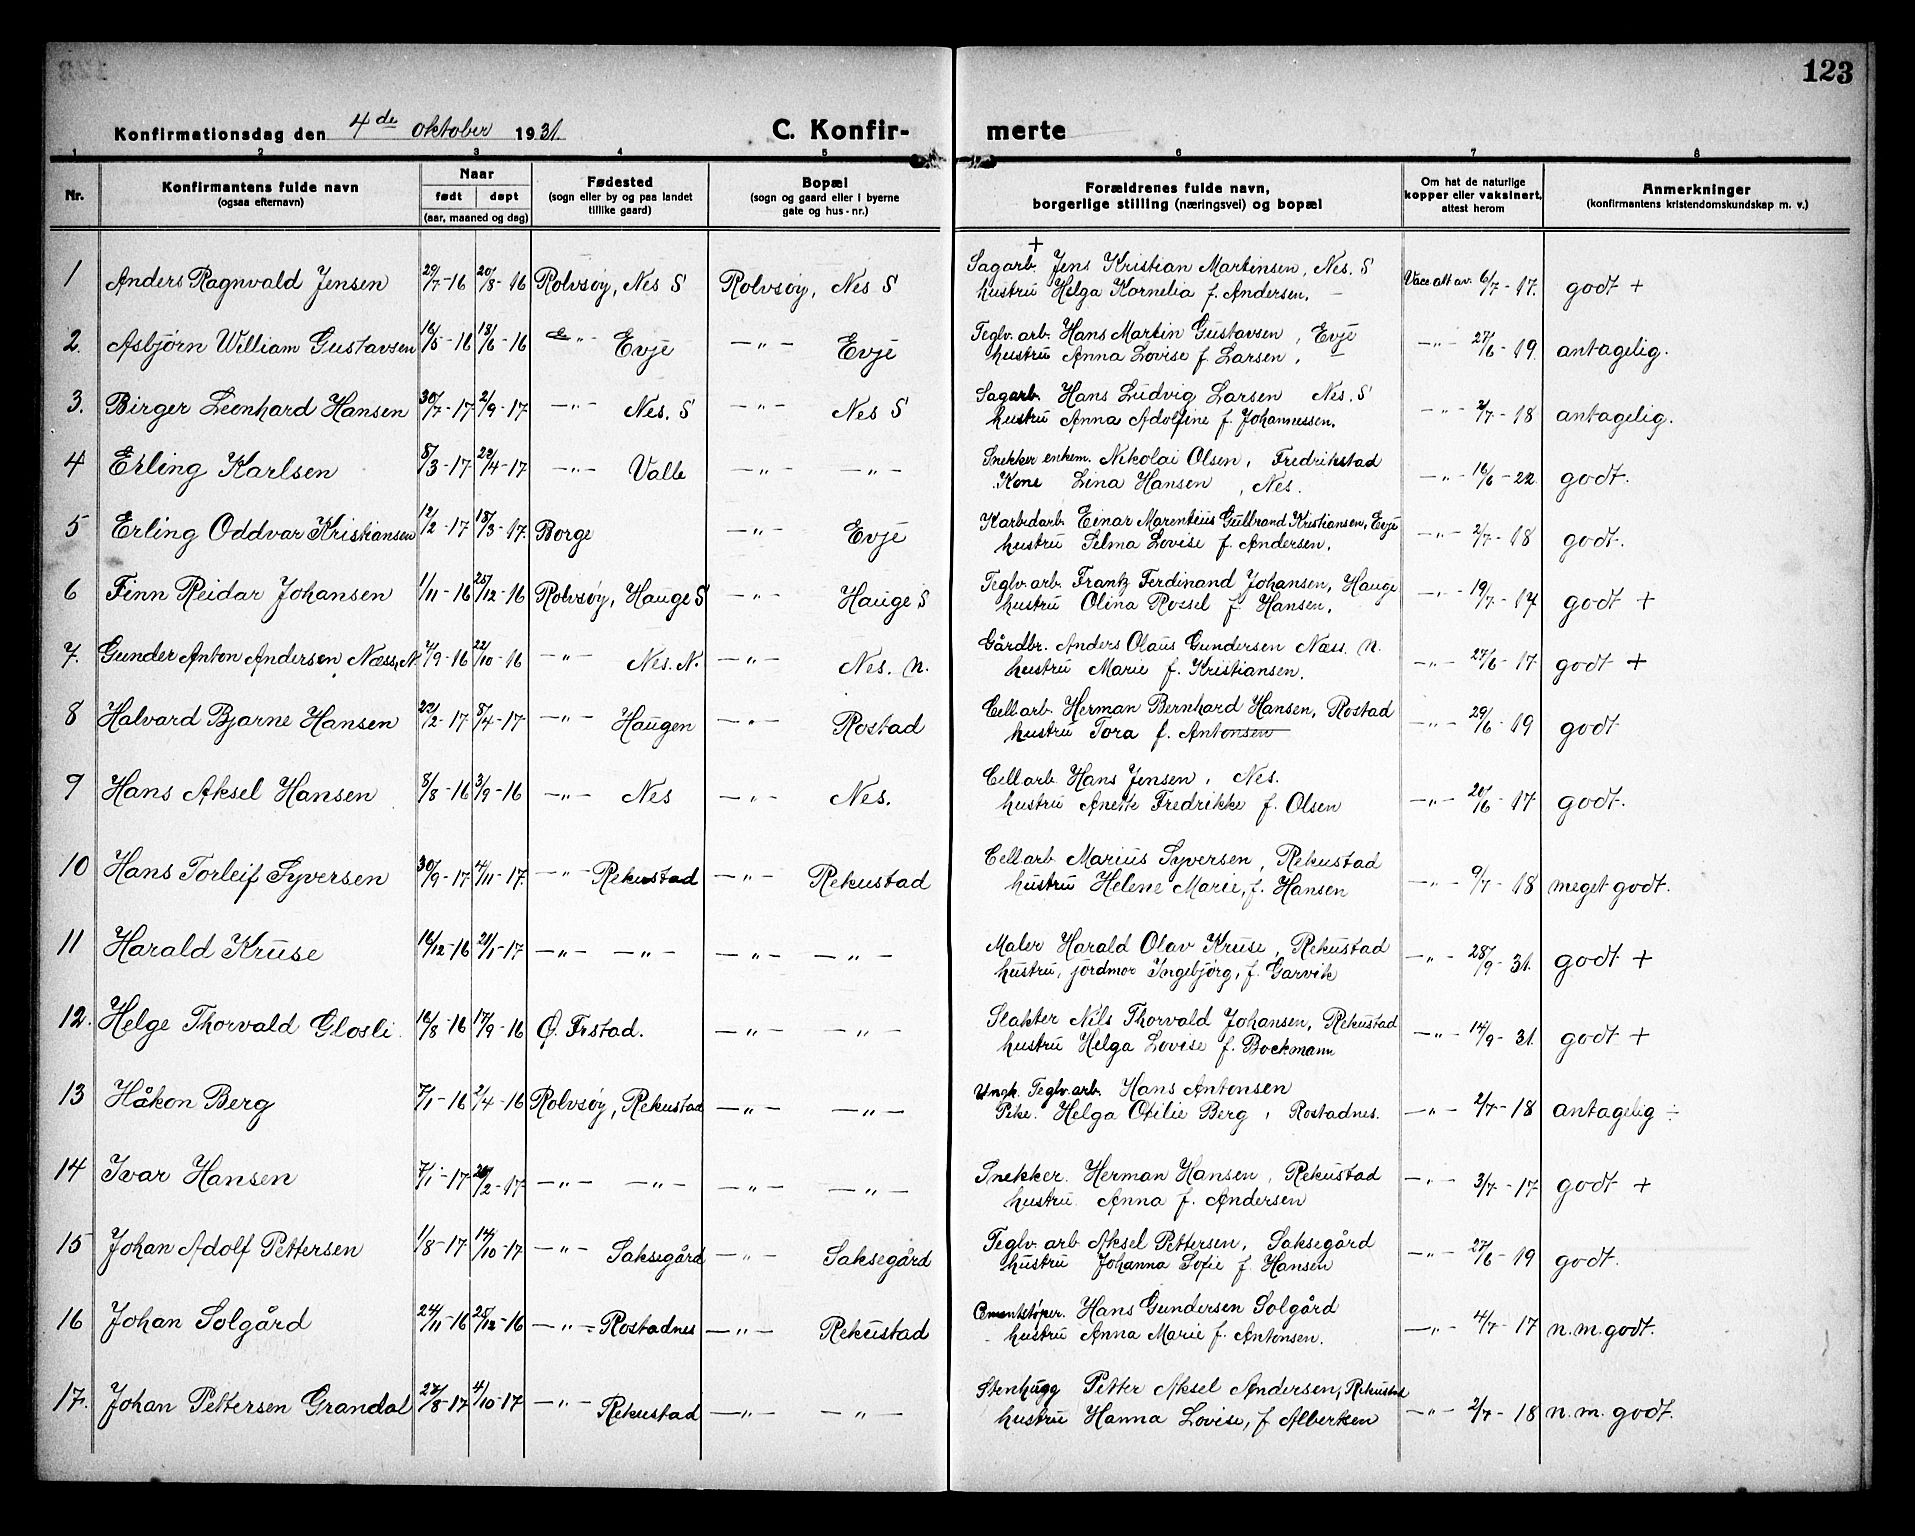 123
Konfirmationsdag den 4de oktober 1931. C. Konfir- merte
1 2 3 4 5 6 7 8
Nr. Konfirmantens fulde navn (ogsaa efternavn) Naar født døpt (aar, maaned og dag) Fødested (sogn eller by og paa landet tillike gaard) Bopæl (sogn og gaard eller i byerne gate og hus-nr.) Forældrenes fulde navn, borgerlige stilling (næringsvei) og bopæl Om hat de naturlige kopper eller vaksinert, attest herom Anmerkninger (konfirmantens kristendomskundskap m. v.)
1 Anders Ragnvald Jensen 29/7-16 20/8-16 Rolvsøy, Nes S Rolvsøy, Nes S Sagarb. + Jens Kristian Martinsen, Nes. S Vacc. att av. 6/7-17. godt +
hustru Helga Kornelia f. Andersen. —
2. Asbjørn William Gustavsen 16/5-16 18/6-16 —"— Evje —"— Evje Teglv. arb. Hans Martin Gustavsen, Evje —"— 27/6-19 antagelig.
hustru Anna Lovise f. Larsen, —
3. Birger Leonhard Hansen 30/7-17 2/9-17 —"— Nes. S —"— Nes S Sagarb. Hans Ludvig Larsen Nes. S —"— 2/7-18 antagelig.
hustru Anna Adolfine f. Johannessen.
4 Erling Karlsen 8/3-17 22/4-17 —"— Valle —"— —"— Snekker enkem. Nikolai Olsen, Fredrikstad —"— 16/6-22 godt.
Kone Lina Hansen, Nes.
5 Erling Oddvar Kristiansen 12/2-17 18/3-17. Borge —"— Evje Karbidarb. Einar Marentius Gulbrand Kristiansen, Evje —"— 2/7-18 godt.
hustru Selma Lovise f. Andersen.
6 Finn Reidar Johansen 1/11-16 25/12-16 Rolvsøy, Hauge S —"— Hauge S Teglv. arb. Frantz Ferdinand Johansen, Hauge —"— 19/7-17 godt +
hustru Olina Rossel f. Hansen.
7. Gunder Anton Andersen Næss, N. 7/9-16 22/10-16 —"— Nes. N. —"— Nes. N. Gårdbr. Anders Olaus Gundersen Næss. N. —"— 27/6-17. godt +
hustru Marie f. Kristiansen.
8 Halvard Bjarne Hansen 22/2-17 8/4-17 —"— Haugen —"— Rostad Cell. arb. Herman Bernhard Hansen, Rostad —"— 29/6-19 godt
hustru Tora f. Antonsen
9 Hans Aksel Hansen 8/8-16 3/9-16 —"— Nes —"— Nes. Cell. arb. Hans Jensen, Nes. —"— 20/6-17. godt.
hustru Anette Fredrikke f. Olsen
10 Hans Torleif Syversen 30/9-17 4/11-17. —"— Rekustad —"— Rekustad Cell. arb Marius Syversen, Rekustad —"— 9/7-18 meget godt.
hustru Helene Marie, f. Hansen
11 Harald Kruse 16/12-16 21/1-17 —"— —"— —"— —"— Maler Harald Olav Kruse, Rekustad —"— 28/9-31. godt +
hustru, jordmor Ingebjørg, f. Garvik
12. Helge Thorvald Glosli. 16/8-16 17/9-16 Ø. Frstad. —"— —"— Slakter Nils Thorvald Johansen, Rekustad —"— 14/9-31. godt +
hustru Helga Lovise f. Bockmann
13 Håkon Berg 7/1-16 2/4-16 Rolvsøy, Rekustad —"— —"— Ungk. Teglv. arb. Hans Antonsen —"— 2/7-18 antagelig ÷
Pike. Helga Otilie Berg, Rostadnes.
14 Ivar Hansen 7/1-17 /2-17 —"— —"— —"— —"— Snekker. Herman Hansen, Rekustad —"— 3/7-17. godt +
hustru. Anna f. Andersen
15 Johan Adolf Pettersen 1/8-17 14/10-17 —"— Saksegård —"— Saksegård Teglv. arb Aksel Pettersen, Saksegård —"— 27/6-19 godt.
hustru Johanna Sofie f. Hansen
16 Johan Solgård 24/11-16 25/12-16 —"— Rostadnes —"— Rekustad Cementstøper. Hans Gundersen Solgård —"— 4/7-17 n.m.godt.
hustru Anna Marie f. Antonsen.
17. Johan Pettersen Grandal 27/8-17 4/10-17 —"— Rekustad —"— —"— Stenhugg Petter Aksel Andersen, Rekustad —"— 2/7-18 n.m. godt.
hustru Hanna Lovise, f Albertsen